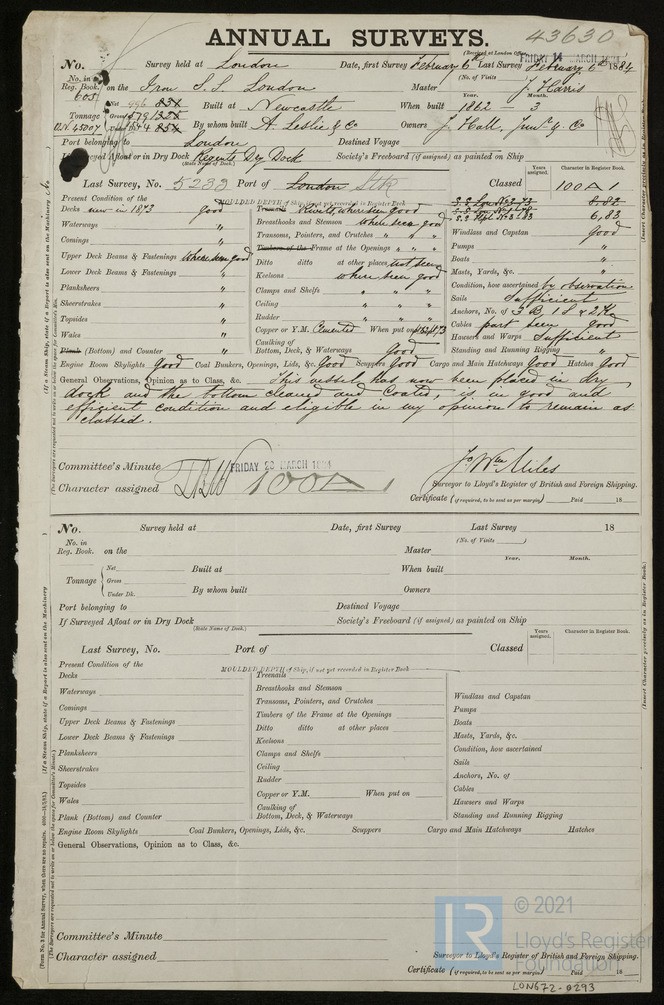 43630
ANNUAL SURVEYS.
(Received at London Office
FRIDAY 14 MARCH 1884
No. Survey held at London Date, first Survey February 6th Last Survey February 6th 1884
No. in Reg. Book. 605 on the Iron S.S. London (No. of Visits) Master J. Harris
Year. Month.
Net 996 834 Built at Newcastle When built 1862 — 3
Tonnage Gross
O.N. 45007 Under Dk. By whom built A. Leslie & Co Owners J. Hall, Junr & Co
Port belonging to London Destined Voyage
If Surveyed Afloat or in Dry Dock Regents Dry Dock Society's Freeboard (if assigned) as painted on Ship
(State Name of Dock.)
Years assigned Character in Register Book.
Last Survey, No. 5233 Port of London Classed 100 A 1
Present Condition of the MOULDED DEPTH of Ship, if not yet recorded in Register Book
Decks new in 1873 good
Waterways "
Comings "
Upper Deck Beams & Fastenings where seen good
Lower Deck Beams & Fastenings "
Planksheers "
Sheerstrakes "
Topsides "
Wales "
Plank (Bottom) and Counter "
Treenails Rivets, where seen good
Breasthooks and Stemson where seen good
Transoms, Pointers, and Crutches " " "
Timbers of the Frame at the Openings " " "
Ditto ditto at other places, not seen
Keelsons where been good
Clamps and Shelfs " " "
Ceiling " " "
Rudder " " "
Copper or Y.M. Cemented When put on
Caulking of Bottom, Deck, & Waterways Good
8,82
6,83
Windlass and Capstan Good
Pumps "
Boats "
Masts, Yards, &c. "
Condition, how ascertained by observation
Sails Sufficient
Anchors, No. of 3 B, 1 S & 2 K
Cables part seen Good
Hawsers and Warps Sufficient
Standing and Running Rigging "
Engine Room Skylights Good Coal Bunkers, Openings, Lids, &c. Good Scuppers Good Cargo and Main Hatchways Good Hatches Good
General Observations, Opinion as to Class, &c. This vessel has now been placed in dry
dock and the bottom cleaned and coated, is in good and
efficient condition and eligible in my opinion to remain as
classed.
Committee's Minute FRIDAY 28 MARCH 1884
Character assigned 100 A 1
Jo. Wm Miles
Surveyor to Lloyd's Register of British and Foreign Shipping.
Certificate (if required, to be sent as per margin) Paid 18
No. Survey held at Date, first Survey Last Survey 18
No. in Reg. Book. on the (No. of Visits) Master
Year. Month.
Net Built at When built
Tonnage Gross
Under Dk. By whom built Owners
Port belonging to Destined Voyage
If Surveyed Afloat or in Dry Dock Society's Freeboard (if assigned) as painted on Ship
(State Name of Dock.)
Years assigned Character in Register Book.
Last Survey, No. Port of Classed
Present Condition of the MOULDED DEPTH of Ship, if not yet recorded in Register Book
Decks
Waterways
Comings
Upper Deck Beams & Fastenings
Lower Deck Beams & Fastenings
Planksheers
Sheerstrakes
Topsides
Wales
Plank (Bottom) and Counter
Treenails
Breasthooks and Stemson
Transoms, Pointers, and Crutches
Timbers of the Frame at the Openings
Ditto ditto at other places
Keelsons
Clamps and Shelfs
Ceiling
Rudder
Copper or Y.M. When put on
Caulking of Bottom, Deck, & Waterways
Windlass and Capstan
Pumps
Boats
Masts, Yards, &c.
Condition, how ascertained
Sails
Anchors, No. of
Cables
Hawsers and Warps
Standing and Running Rigging
Engine Room Skylights Coal Bunkers, Openings, Lids, &c. Scuppers Cargo and Main Hatchways Hatches
General Observations, Opinion as to Class, &c.
Committee's Minute
Character assigned
Surveyor to Lloyd's Register of British and Foreign Shipping.
Certificate (if required, to be sent as per margin) Paid 18
LR © 2021
Lloyd's Register
Foundation
LON672-0293